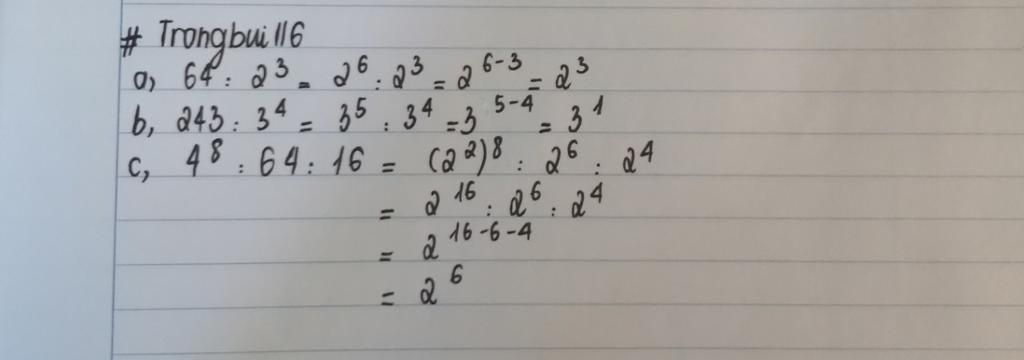 # Trongbui116
a, 64 : 2³ = 2⁶ : 2³ = 2⁶⁻³ = 2³
b, 243 : 3⁴ = 3⁵ : 3⁴ = 3⁵⁻⁴ = 3¹
c, 4⁸ : 64 : 16 = (2²)⁸ : 2⁶ : 2⁴
= 2¹⁶ : 2⁶ : 2⁴
= 2¹⁶⁻⁶⁻⁴
= 2⁶